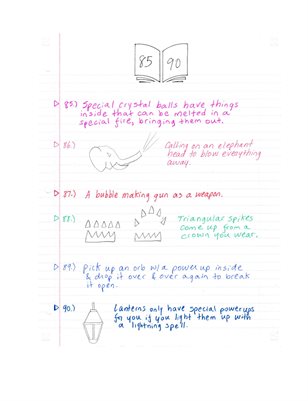 85 90
85.) Special crystal balls have things
inside that can be melted in a
special fire, bringing them out.
86.) Calling on an elephant
head to blow everything
away.
87.) A bubble making gun as a weapon.
88.) Triangular spikes
come up from a
crown you wear.
89.) Pick up an orb w/a powerup inside
& drop it over & over again to break
it open.
90.) Lanterns only have special powerups
for you if you light them up with
a lightning spell.